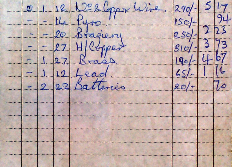 " 2 1. 12. No 2 Copper Wire 270/- 5 17
" " 14. Pyro. 150/- 94
" " 20. Braziery 230/-
" " 27. H/Copper 310/- 3 73
" 1. 27. Brass 190/- 4 67
" 1. 12. Lead 65/- 1 16
" 2. 22. Batteries 20/- 70